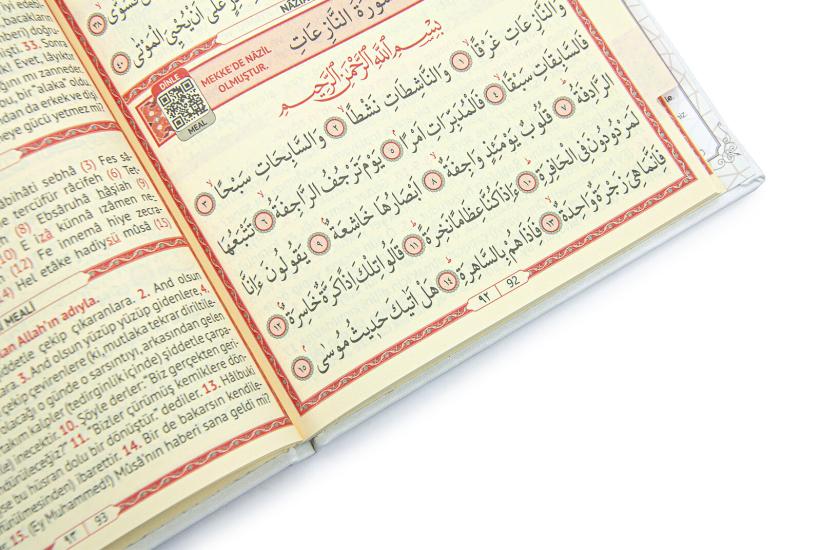 سورة النازعات
MEKKE'DE NÂZİL
OLMUŞTUR.
DİNLE
MEAL
بِسْمِ اللّٰهِ الرَّحْمٰنِ الرَّحِيمِ
وَالنَّازِعَاتِ غَرْقًا ١ وَالنَّاشِطَاتِ نَشْطًا ٢ وَالسَّابِحَاتِ سَبْحًا ٣
فَالسَّابِقَاتِ سَبْقًا ٤ فَالْمُدَبِّرَاتِ اَمْرًا ٥ يَوْمَ تَرْجُفُ الرَّاجِفَةُ ٦ تَتْبَعُهَا
الرَّادِفَةُ ٧ قُلُوبٌ يَوْمَئِذٍ وَاجِفَةٌ ٨ اَبْصَارُهَا خَاشِعَةٌ ٩ يَقُولُونَ ءَاِنَّا
لَمَرْدُودُونَ فِى الْحَافِرَةِ ١٠ ءَاِذَا كُنَّا عِظَامًا نَخِرَةً ١١ قَالُوا تِلْكَ اِذًا كَرَّةٌ خَاسِرَةٌ ١٢
فَاِنَّمَا هِىَ زَجْرَةٌ وَاحِدَةٌ ١٣ فَاِذَا هُمْ بِالسَّاهِرَةِ ١٤ هَلْ اَتٰيكَ حَدِيثُ مُوسٰى ١٥
٩٢ 92
bacakların
33. Sonra
Evet, lâyıktır
ğını mı zanneder.
bu, bir "alaka" oldu.
ndan da erkek ve dişi
meye gücü yetmez mi?
âbihâti sebhâ (3) Fes sâ-
tercüfür râcifeh (6) Tet-
(8) Ebsâruhâ hâşiah (9)
(10) E izâ künnâ izâmen ne-
(12) Fe innemâ hiye zecra-
(14) Hel etâke hadîysü mûsâ (15)
MEALİ
Allah'ın adıyla.
şiddetle çekip çıkaranlara. 2. And olsun
3. And olsun yüzüp yüzüp gidenlere, 4.
çekip çevirenlere (ki, mutlaka tekrar diriltile-
olacağı o günde o sarsıntıyı, arkasından gelen
takım kalpler (tedirginlik içinde) şiddetle çarpa-
inecektir. 10. Şöyle derler: "Biz gerçekten geri-
döndürüleceğiz?" 11. "Bizler çürümüş kemiklere dön-
bu hüsran dolu bir dönüştür." dediler. 13. Hâlbuki
ibarettir. 14. Bir de bakarsın kendile-
15. (Ey Muhammed!) Mûsâ'nın haberi sana geldi mi?
٩٣ 93